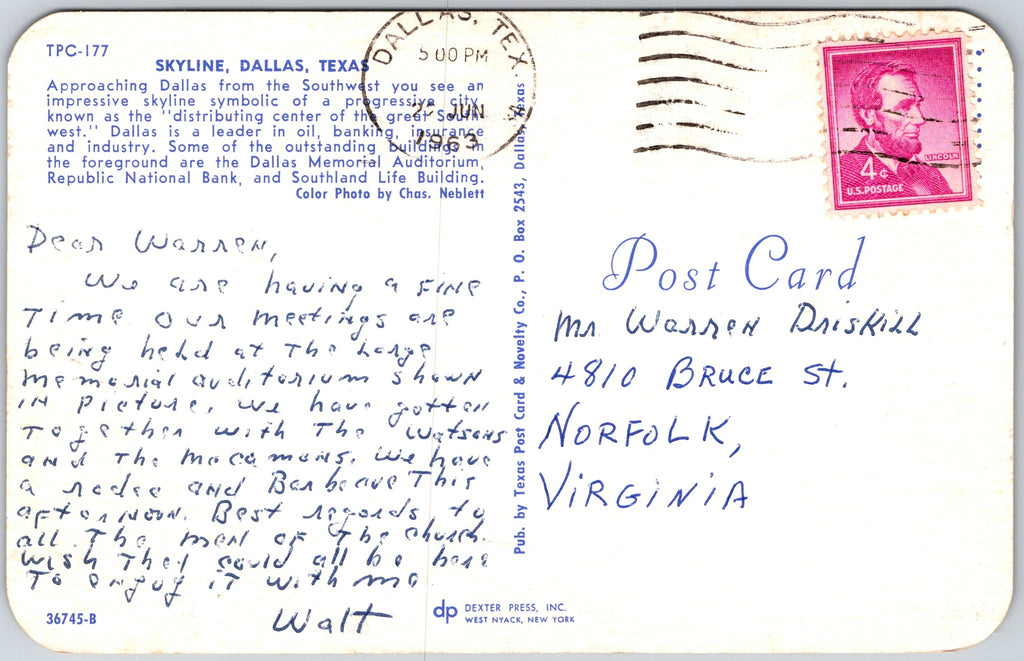 TPC-177
SKYLINE, DALLAS, TEXAS
Approaching Dallas from the Southwest you see an
impressive skyline symbolic of a progressive city,
known as the "distributing center of the great South-
west." Dallas is a leader in oil, banking, insurance
and industry. Some of the outstanding buildings in
the foreground are the Dallas Memorial Auditorium,
Republic National Bank, and Southland Life Building.
Color Photo by Chas. Neblett
DALLAS, TEX.
5 00 PM
JUN
1963
LINCOLN
4¢
U.S. POSTAGE
Dear Warren,
We are having a fine
Time Our meetings are
being held at The Large
memorial auditorium shown
in picture. We have gotten
Together with The Watsons
and The Macamons. We have
a rodeo and Barbecue This
afternoon. Best regards to
all The men of The church.
Wish They could all be here
To enjoy it with me
Walt
Pub. by Texas Post Card & Novelty Co., P. O. Box 2543, Dallas, Texas
Post Card
Mr Warren Driskill
4810 Bruce St.
Norfolk,
Virginia
36745-B
dp DEXTER PRESS, INC.
WEST NYACK, NEW YORK